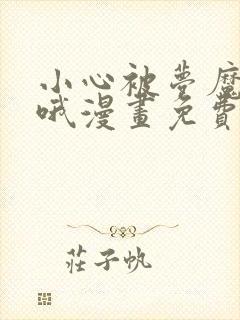 小心被夢魔
哦漫畫免費
莊子帆